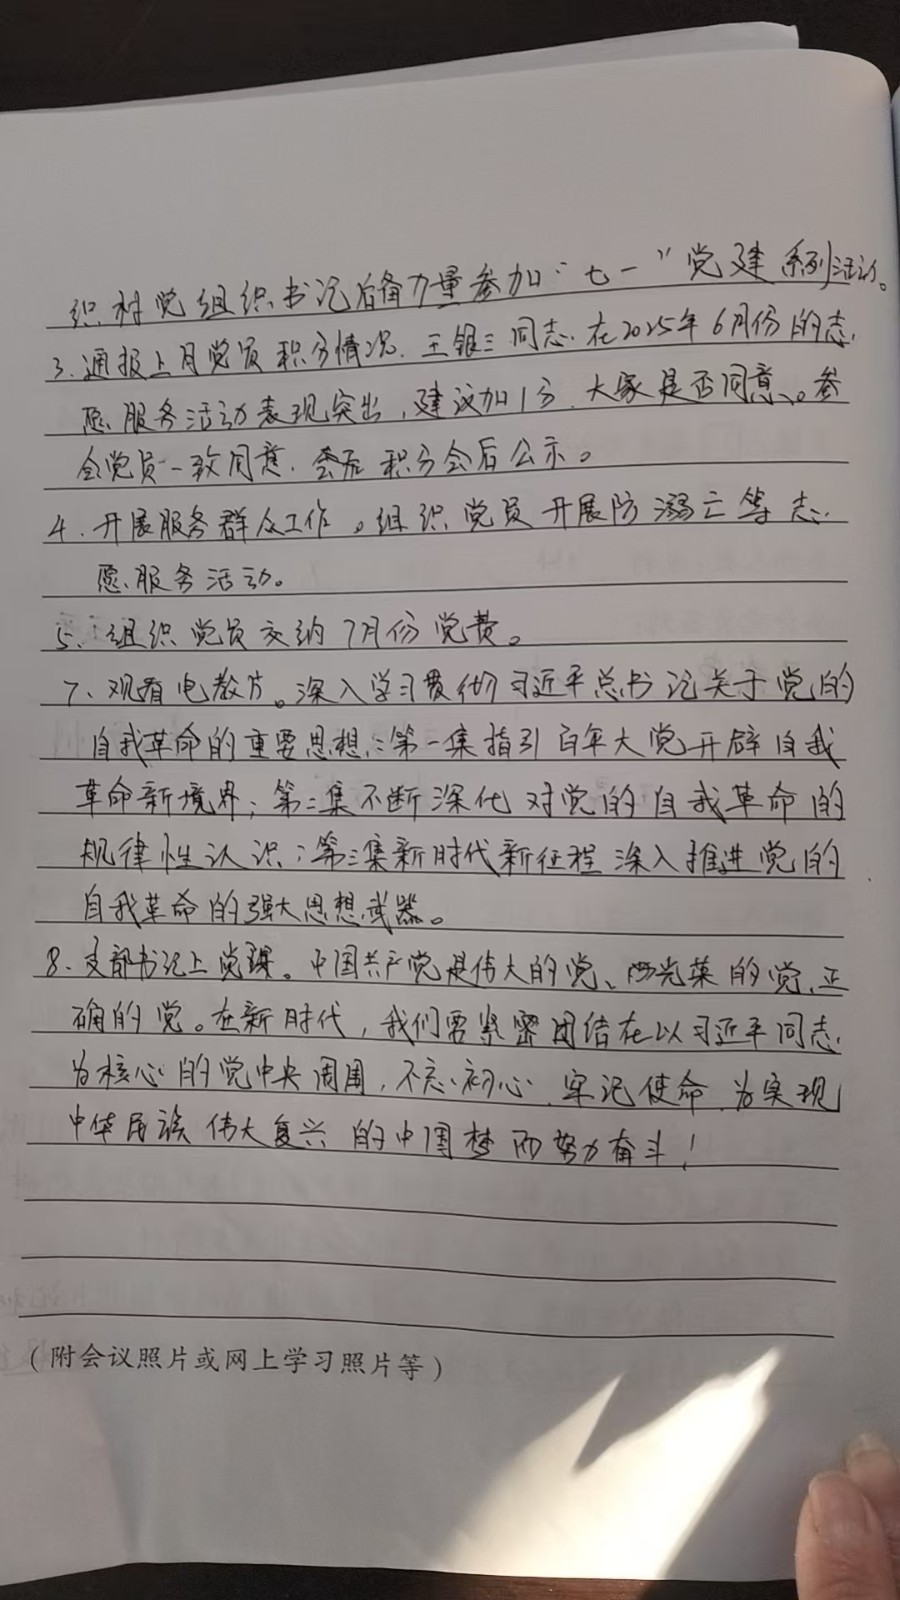 织村党组织书记后备力量参加“七一”党建系列活动。
3、通报上月党员积分情况。王银三同志在2025年6月份的志
愿服务活动表现突出，建议加1分，大家是否同意。参
会党员一致同意，季后积分会后公示。
4、开展服务群众工作。组织党员开展防溺亡等志
愿服务活动。
5、组织党员交纳7月份党费。
7、观看电教片。深入学习贯彻习近平总书记关于党的
自我革命的重要思想：第一集指引百年大党开辟自我
革命新境界；第二集不断深化对党的自我革命的
规律性认识；第三集新时代新征程深入推进党的
自我革命的强大思想武器。
8、支部书记上党课。中国共产党是伟大的党、光荣的党、正
确的党。在新时代，我们要紧密团结在以习近平同志
为核心的党中央周围，不忘初心，牢记使命，为实现
中华民族伟大复兴的中国梦而努力奋斗！
（附会议照片或网上学习照片等）